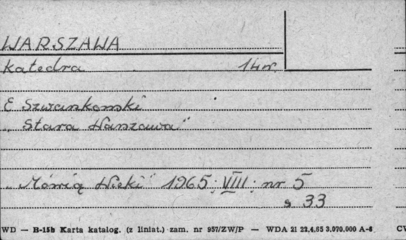 WARSZAWA
katedra 14w.
E Szwankowski
"Stara Warszawa"
"Mówią Wieki" 1965; VIII; nr 5
s 33
WD — B-15b Karta katalog. (z liniat.) zam. nr 957/ZW/P — WDA 21 22.4.65 3.070.000 A-6